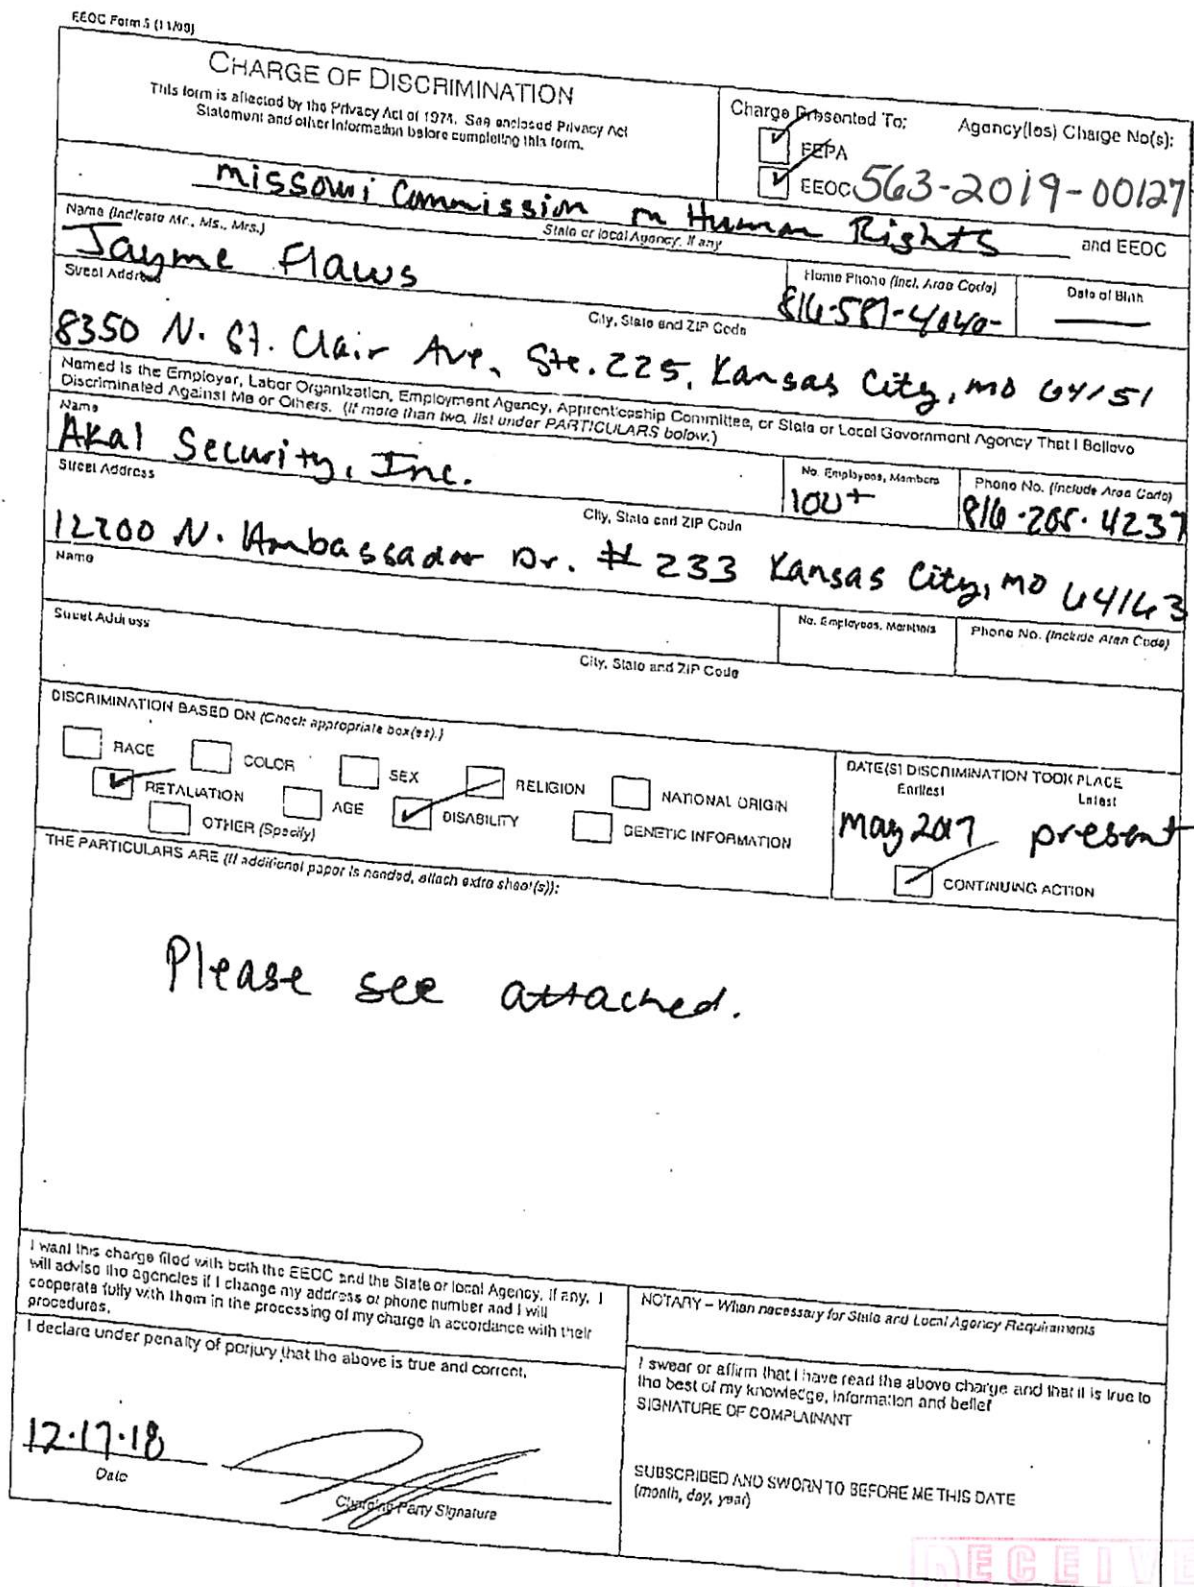 EEOC Form 5 (11/09)
CHARGE OF DISCRIMINATION
This form is affected by the Privacy Act of 1974. See enclosed Privacy Act
Statement and other information before completing this form.
Charge Presented To: Agency(ies) Charge No(s):
FEPA
EEOC 563-2019-00127
Missouri Commission on Human Rights and EEOC
State or local Agency, if any
Name (Indicate Mr., Ms., Mrs.) Home Phone (Incl. Area Code) Date of Birth
Jayme Flaws 816-587-4040
Street Address City, State and ZIP Code
8350 N. St. Clair Ave, Ste. 225, Kansas City, MO 64151
Named is the Employer, Labor Organization, Employment Agency, Apprenticeship Committee, or State or Local Government Agency That I Believe
Discriminated Against Me or Others. (If more than two, list under PARTICULARS below.)
Name No. Employees, Members Phone No. (Include Area Code)
Akal Security, Inc. 100+ 816-268-4237
Street Address City, State and ZIP Code
12200 N. Ambassador Dr. # 233 Kansas City, MO 64163
Name No. Employees, Members Phone No. (Include Area Code)
Street Address City, State and ZIP Code
DISCRIMINATION BASED ON (Check appropriate box(es).) DATE(S) DISCRIMINATION TOOK PLACE
Earliest Latest
RACE COLOR SEX RELIGION NATIONAL ORIGIN
RETALIATION AGE DISABILITY GENETIC INFORMATION
OTHER (Specify)
May 2017 present
CONTINUING ACTION
THE PARTICULARS ARE (If additional paper is needed, attach extra sheet(s)):
Please see attached.
I want this charge filed with both the EEOC and the State or local Agency, if any. I
will advise the agencies if I change my address or phone number and I will
cooperate fully with them in the processing of my charge in accordance with their
procedures.
I declare under penalty of perjury that the above is true and correct.
12.17.18
Date Charging Party Signature
NOTARY – When necessary for State and Local Agency Requirements
I swear or affirm that I have read the above charge and that it is true to
the best of my knowledge, information and belief
SIGNATURE OF COMPLAINANT
SUBSCRIBED AND SWORN TO BEFORE ME THIS DATE
(month, day, year)